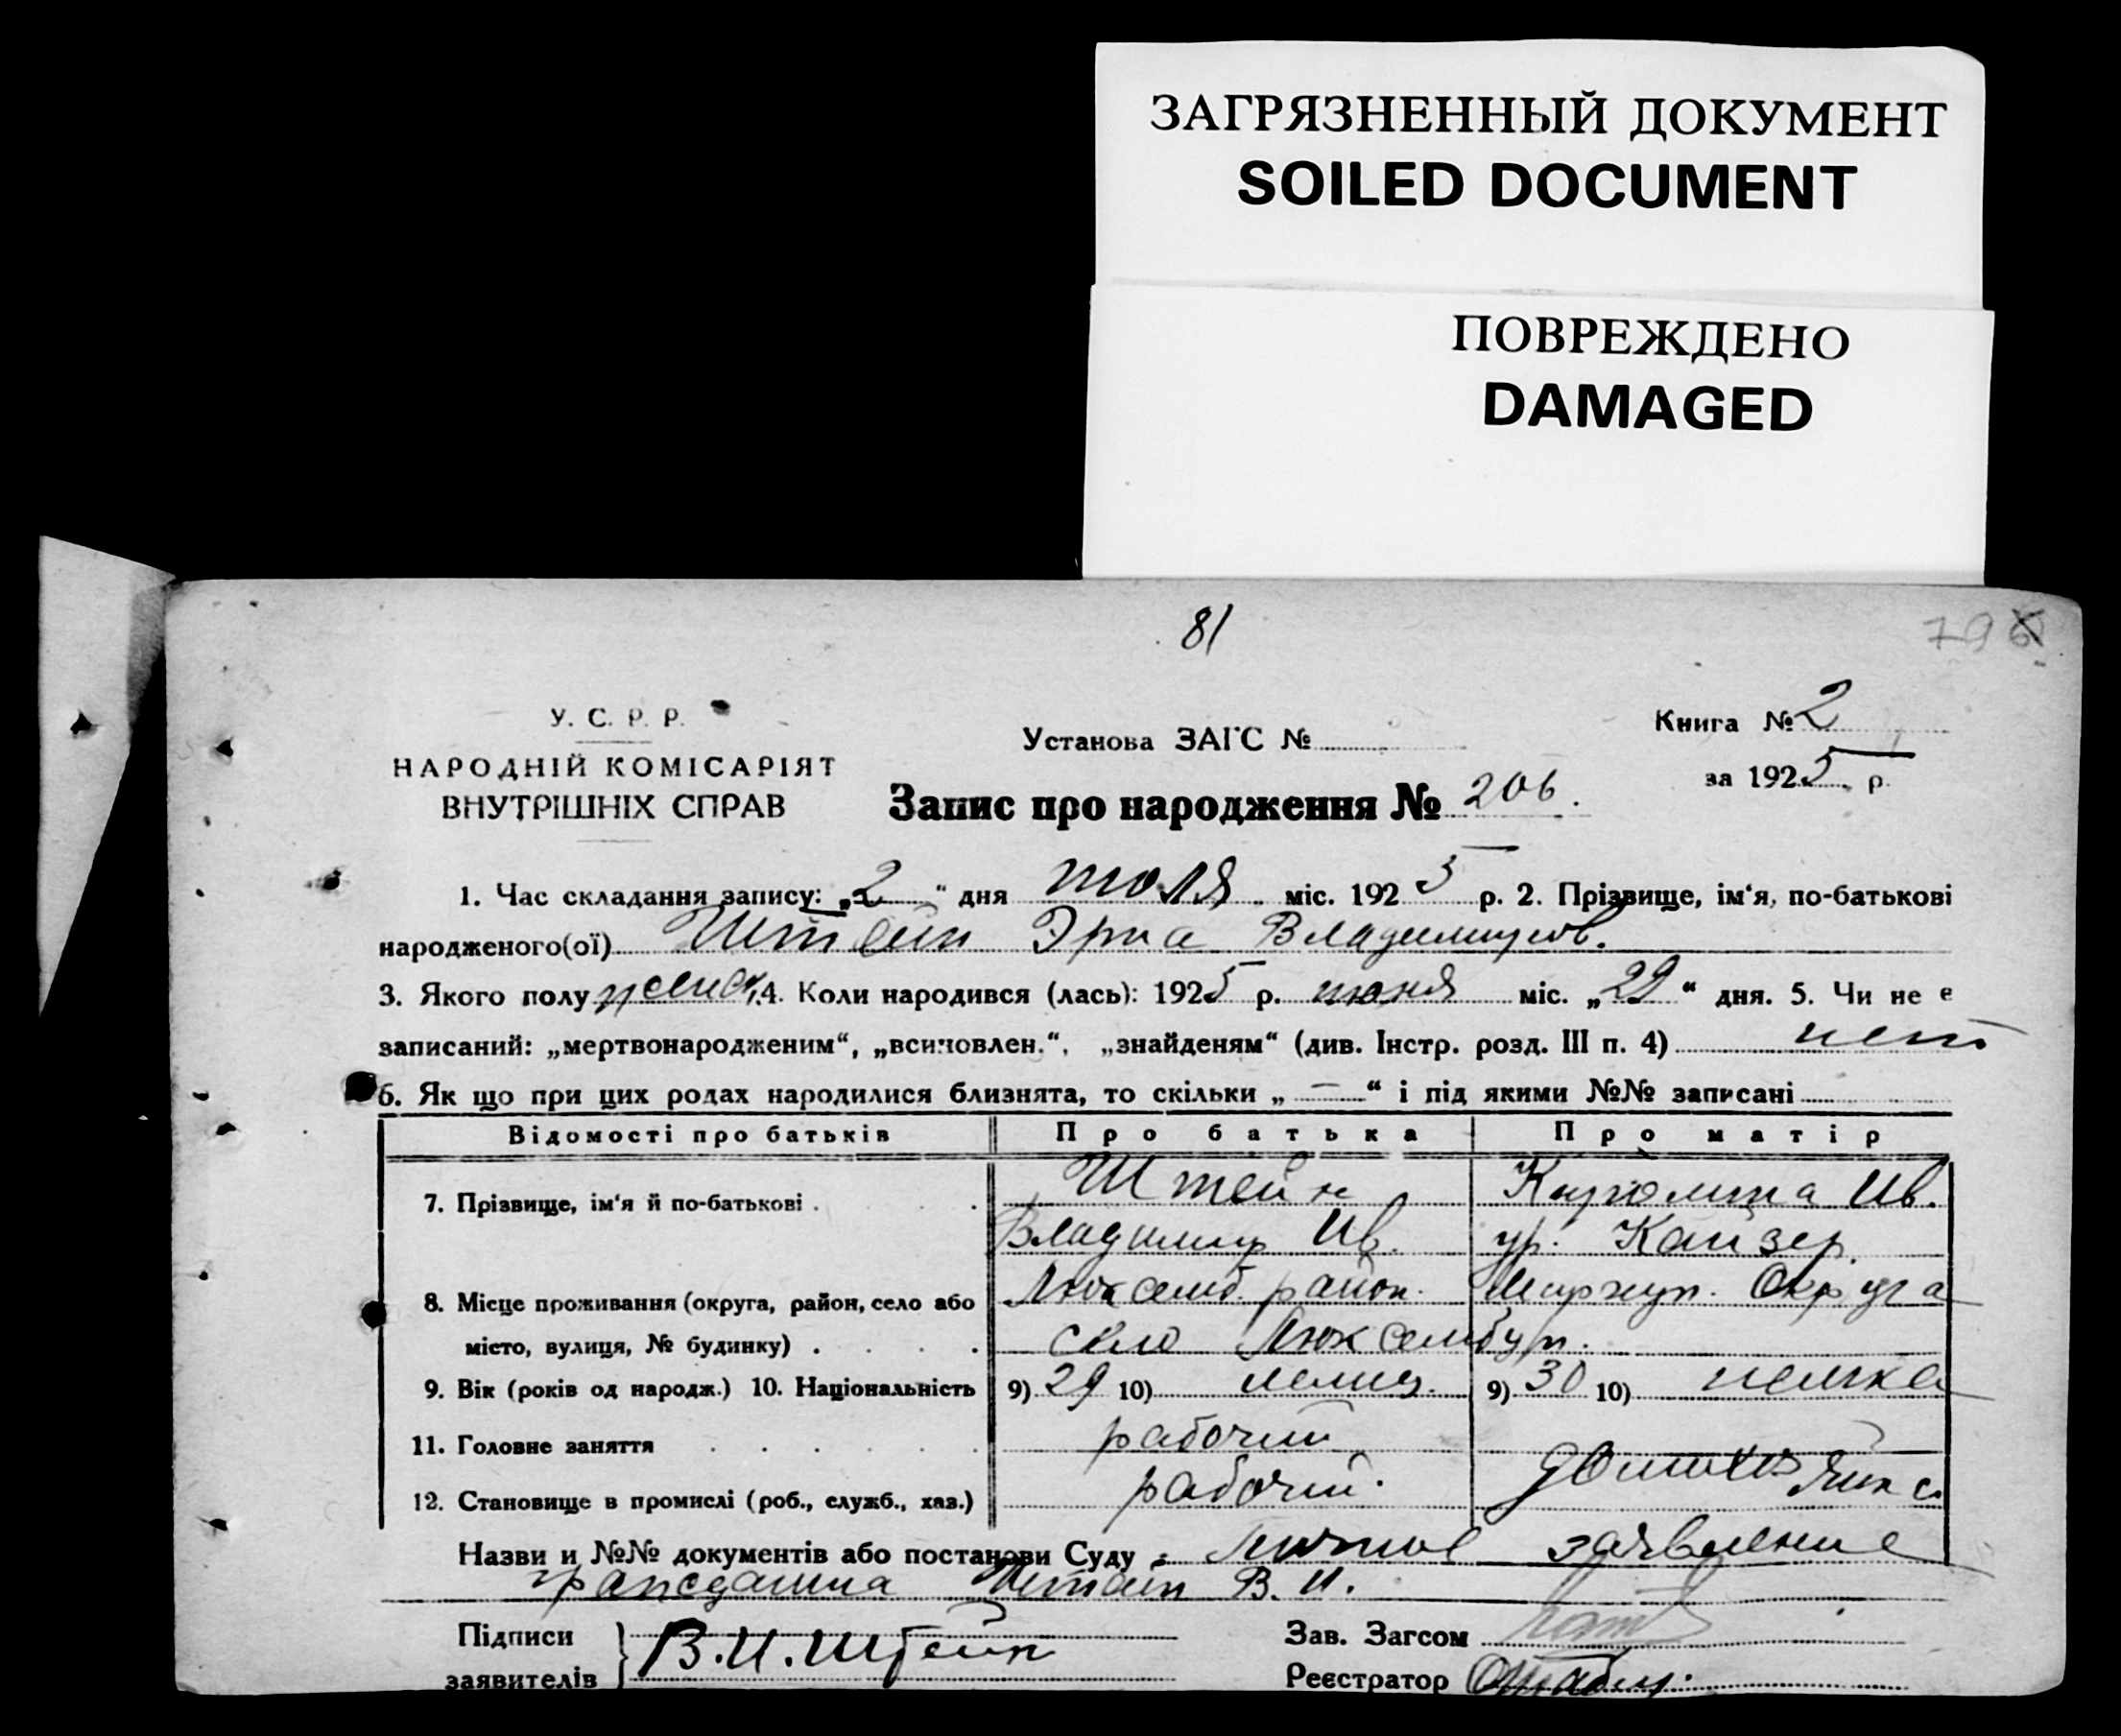 ЗАГРЯЗНЕННЫЙ ДОКУМЕНТ
SOILED DOCUMENT
ПОВРЕЖДЕНО
DAMAGED
81
У. С. Р. Р.
НАРОДНІЙ КОМІСАРІЯТ
ВНУТРІШНІХ СПРАВ
Установа ЗАГС №
Книга № 2
за 1925 р.
Запис про народження № 206.
1. Час складання запису: „2“ дня июля міс. 1925 р. 2. Прізвище, ім‘я, по-батькові
народженого(ої) Штейн Эрна Владимиров.
3. Якого полу женск. 4. Коли народився (лась): 1925 р. июня міс. „29“ дня. 5. Чи не є
записаний: „мертвонародженим“, „всиновлен.“, „знайденям“ (див. Інстр. розд. III п. 4) нет
6. Як що при цих родах народилися близнята, то скільки „ — “ і під якими №№ записані
Відомості про батьків Про батька Про матір
7. Прізвище, ім‘я й по-батькові . Штейн Каролина Ив.
Владимир Ив. ур. Кайзер.
8. Місце проживання (округа, район, село або Люксемб. район. Мариуп. Округа
місто, вулиця, № будинку) . село Люксембург.
9. Вік (років од народж.) 10. Національність 9) 29 10) немец. 9) 30 10) немка
11. Головне заняття рабочий
12. Становище в промислі (роб., служб., хаз.) рабочий.
Назви и №№ документів або постанови Суду: Личное заявление
гражданина Штейн В. И.
Підписи
заявителів
В. И. Штейн
Зав. Загсом
Реєстратор